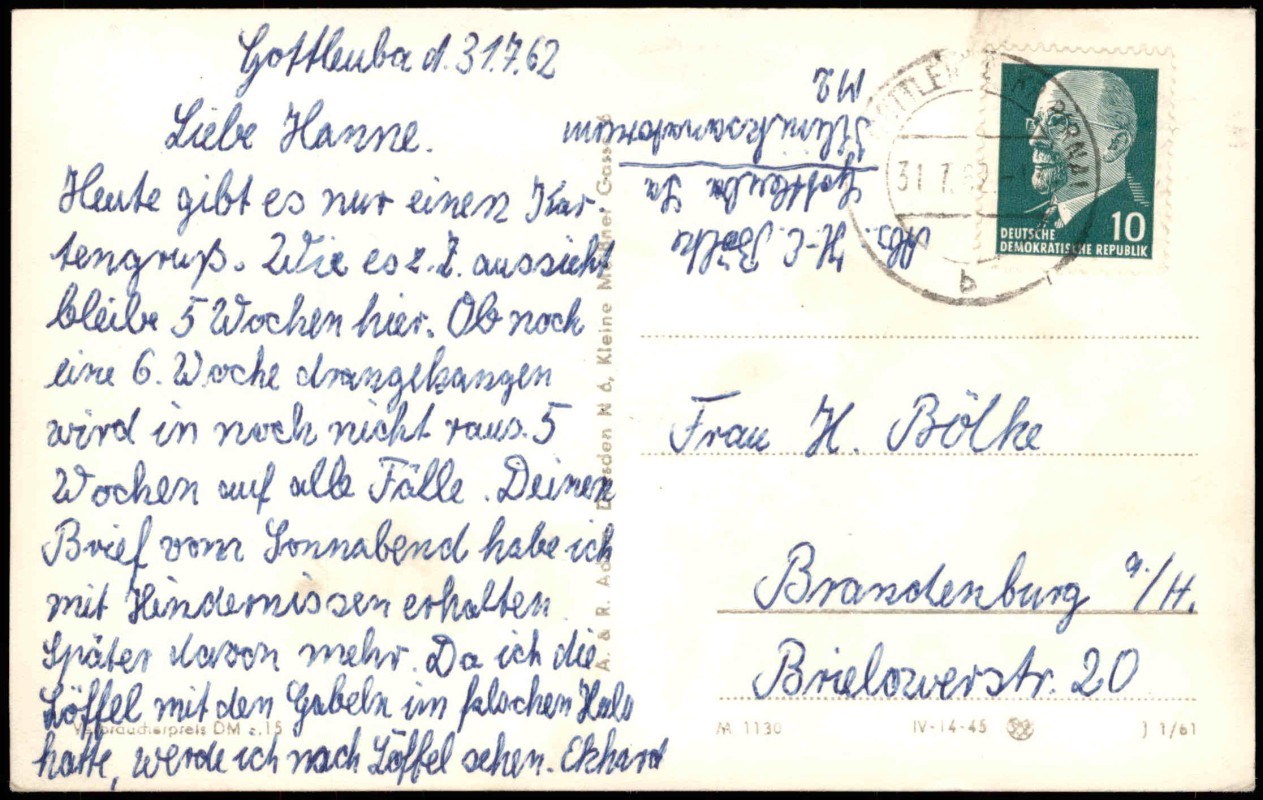 Gottleuba d. 31.7.62
Liebe Hanne.
Heute gibt es nur einen Kar
tengruß. Wie es z. Z. aussieht
bleibe 5 Wochen hier. Ob noch
eine 6. Woche drangehangen
wird in noch nicht raus. 5
Wochen auf alle Fälle. Deinen
Brief vom Sonnabend habe ich
mit Hindernissen erhalten
Später davon mehr. Da ich die
Löffel mit den Gabeln im falschen Hals
hatte, werde ich nach Löffel sehen. Ekhard
Verbraucherpreis DM -.15
A. & R. Ad Dresden N 6, Kleine Meißner Gasse
Abs. H.-E. Bölke
Gottleuba Sa
Kliniksanatorium
M2
31.7.62
b
DEUTSCHE
DEMOKRATISCHE REPUBLIK
10
Frau H. Bölke
Brandenburg a./H.
Brielowerstr. 20
M 1130 IV-14-45 J 1/61